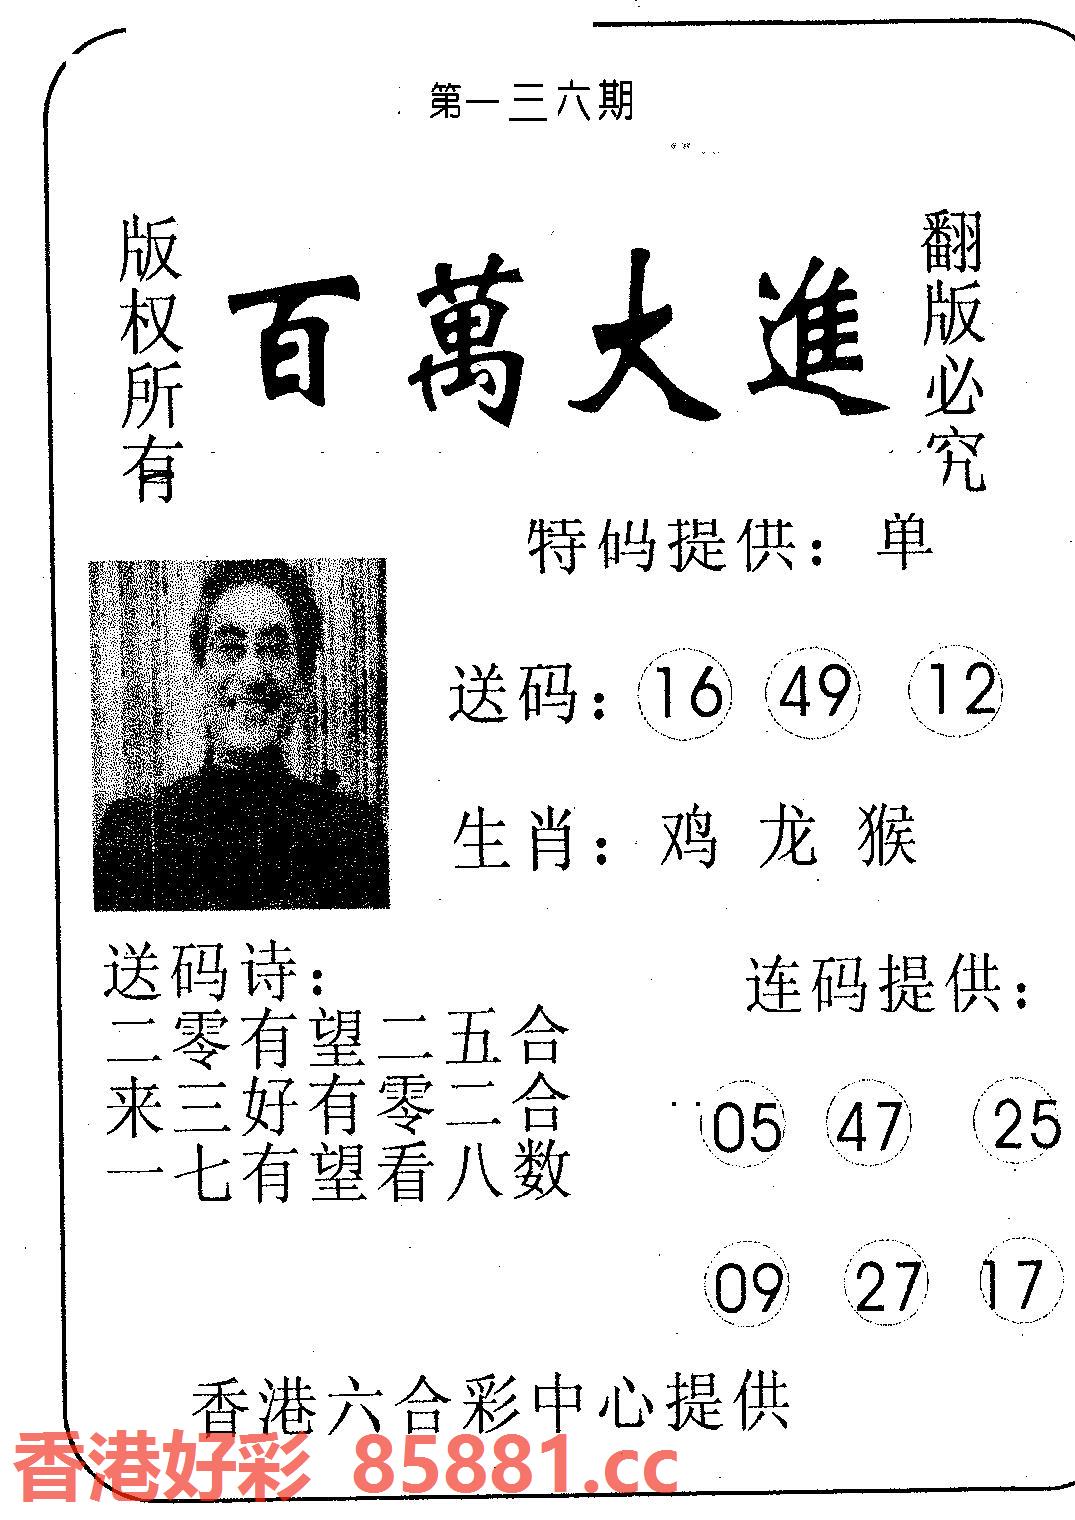 第一三六期
版权所有
百萬大進
翻版必究
特码提供：单
送码：16 49 12
生肖：鸡 龙 猴
送码诗：
二零有望二五合
来三好有零二合
一七有望看八数
连码提供：
05 47 25
09 27 17
香港六合彩中心提供
香港好彩 85881.cc